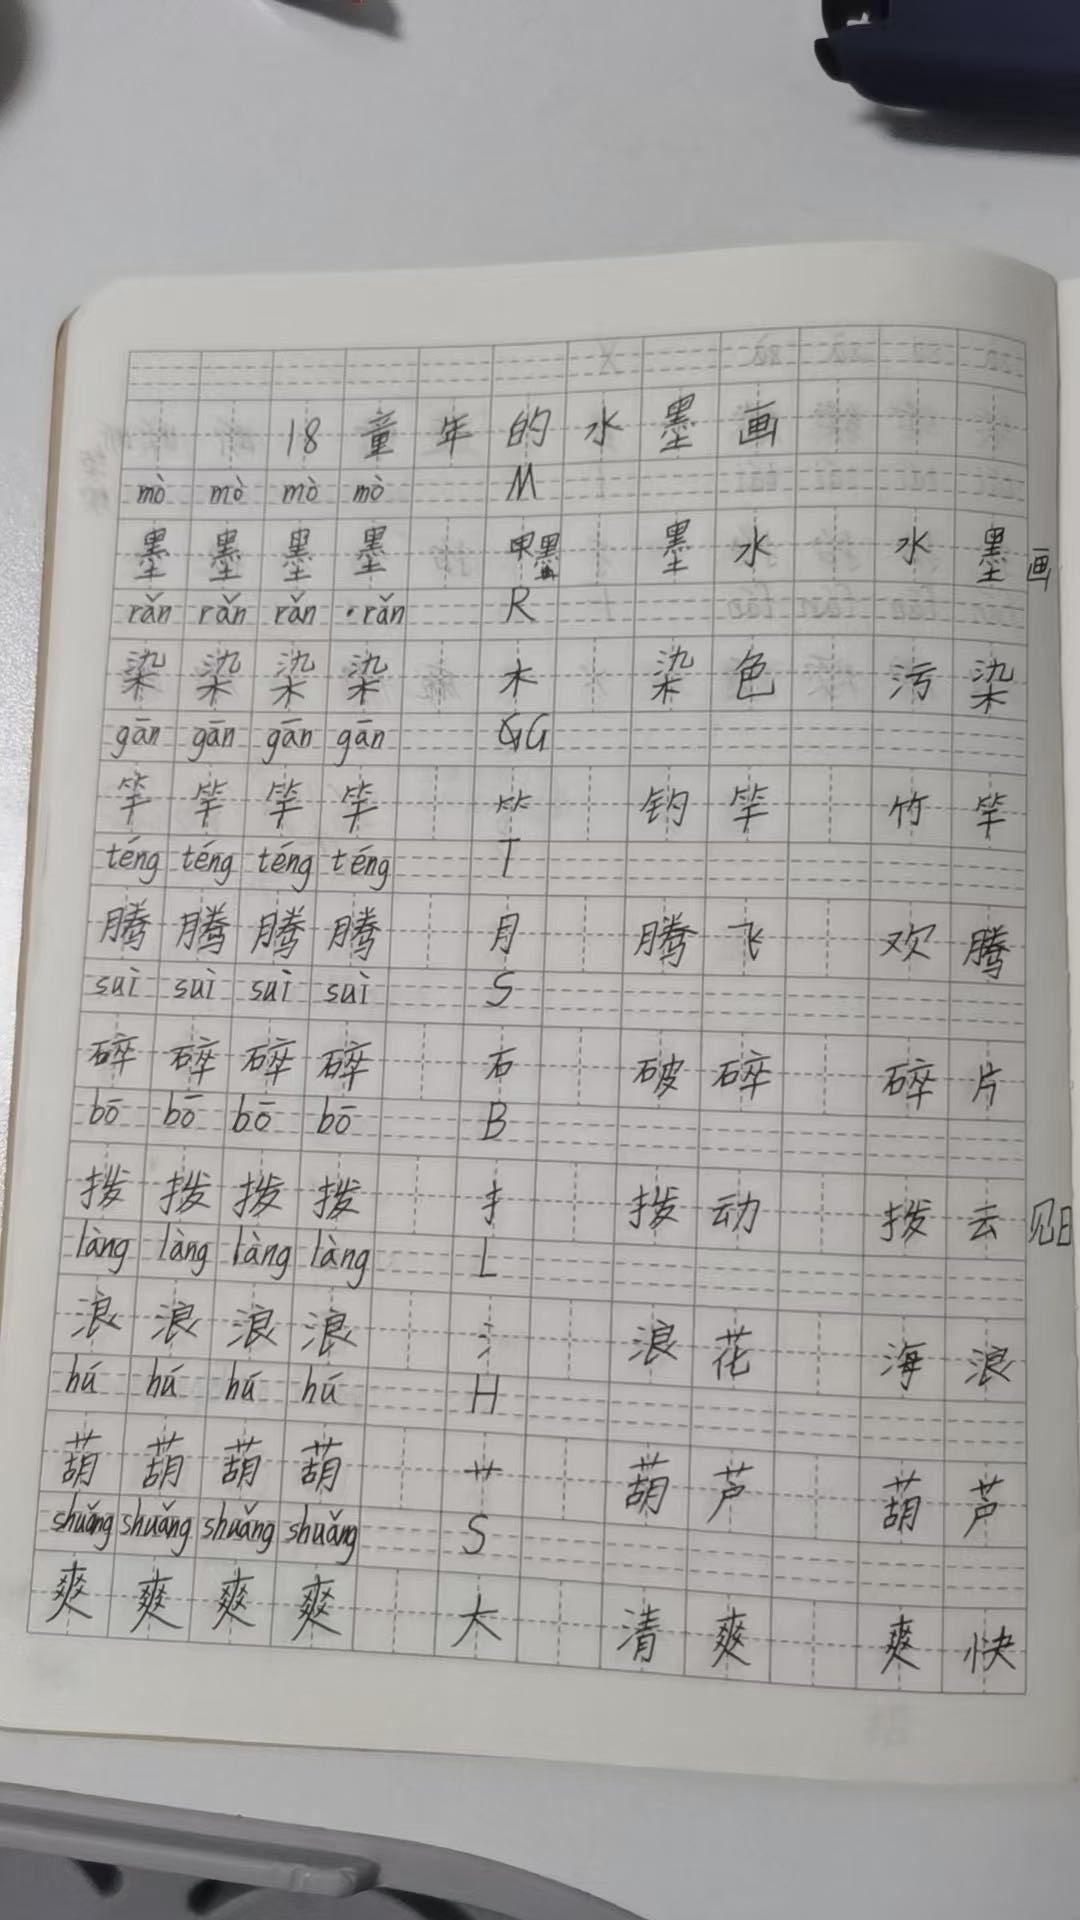 18 童年的水墨画
mò mò mò mò M
墨 墨 墨 墨 黑 墨水 水墨画
rǎn rǎn rǎn rǎn R
染 染 染 染 木 染色 污染
gān gān gān gān G G
竿 竿 竿 竿 ⺮ 钓竿 竹竿
téng téng téng téng T
腾 腾 腾 腾 月 腾飞 欢腾
suì suì suì suì S
碎 碎 碎 碎 石 破碎 碎片
bō bō bō bō B
拨 拨 拨 拨 扌 拨动 拨云见日
làng làng làng làng L
浪 浪 浪 浪 氵 浪花 海浪
hú hú hú hú H
葫 葫 葫 葫 艹 葫芦 葫芦
shuǎng shuǎng shuǎng shuǎng S
爽 爽 爽 爽 大 清爽 爽快